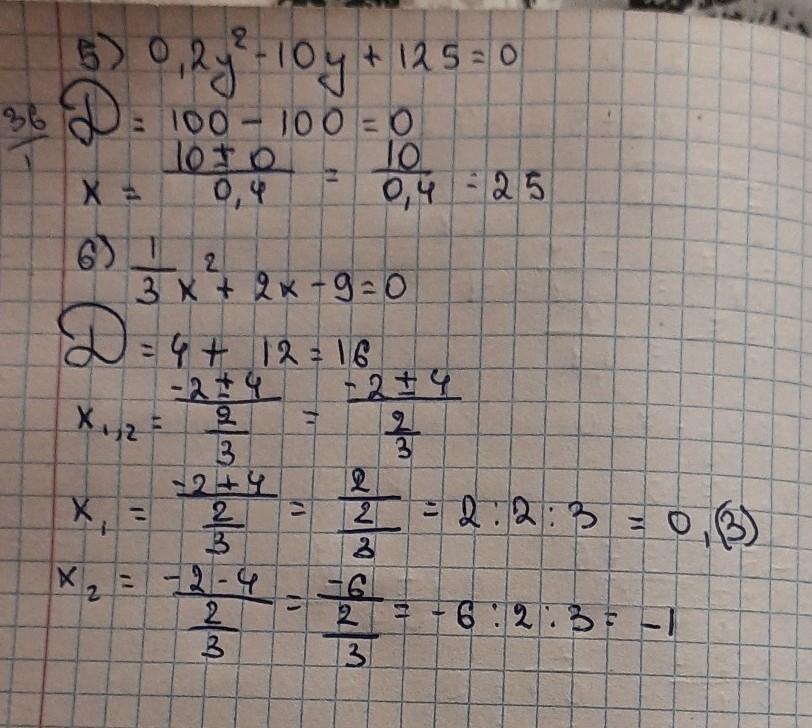 5) 0,2y² - 10y + 125 = 0
D = 100 - 100 = 0
x = (10 ± 0)/0,4 = 10/0,4 = 25
6) 1/3 x² + 2x - 9 = 0
D = 4 + 12 = 16
x₁,₂ = (-2 ± 4)/(2/3) = (-2 ± 4)/(2/3)
x₁ = (-2 + 4)/(2/3) = 2/(2/3) = 2 : 2 : 3 = 0,(3)
x₂ = (-2 - 4)/(2/3) = -6/(2/3) = -6 : 2 : 3 = -1